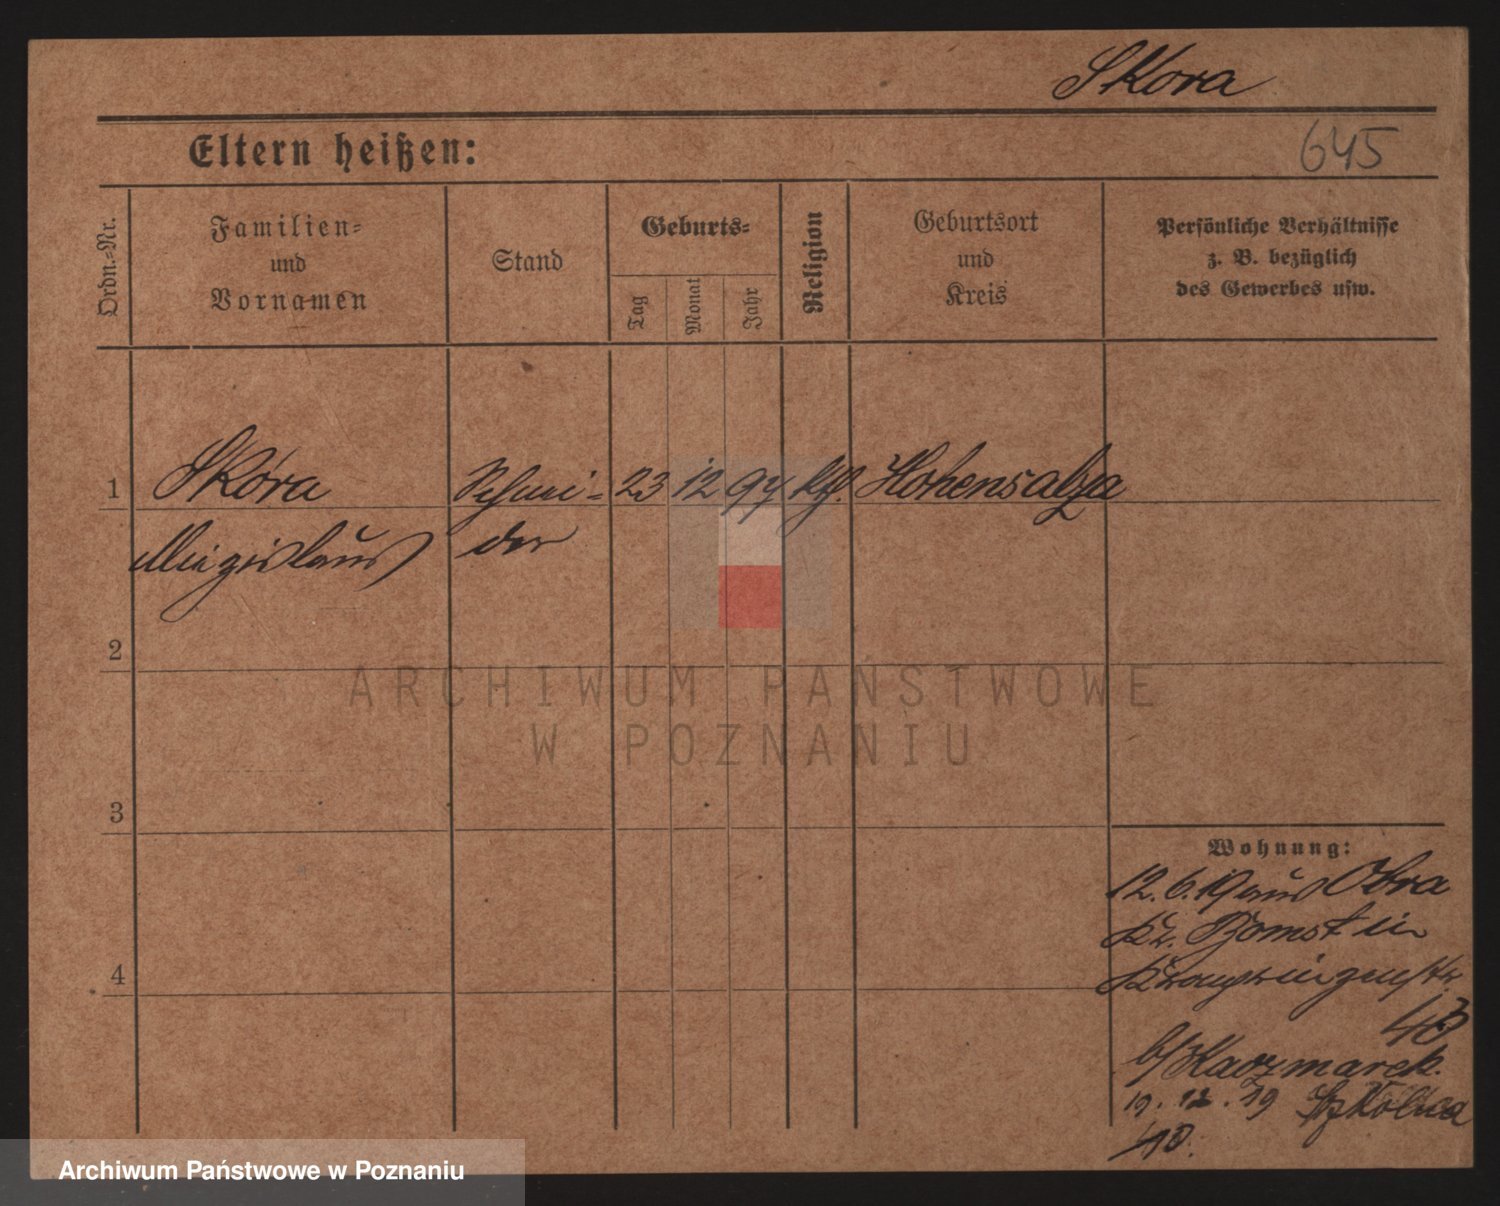 Skora
Eltern heißen:
645
Ordn.-Nr.
Familien-
und
Vornamen
Stand
Geburts-
Tag
Monat
Jahr
Religion
Geburtsort
und
Kreis
Persönliche Verhältnisse
z. B. bezüglich
des Gewerbes usw.
1
Skóra
Schnei- 23 12 97 kth. Hohensalza
Miezislaus
der
2
ARCHIWUM PAŃSTWOWE
W POZNANIU
3
Wohnung:
12.6.19 aus Obra
Kr. Bomst in
4
Kronprinzenstr.
43
b/ Kaczmarek.
19. 12. 19 Szkolna
10.
Archiwum Państwowe w Poznaniu